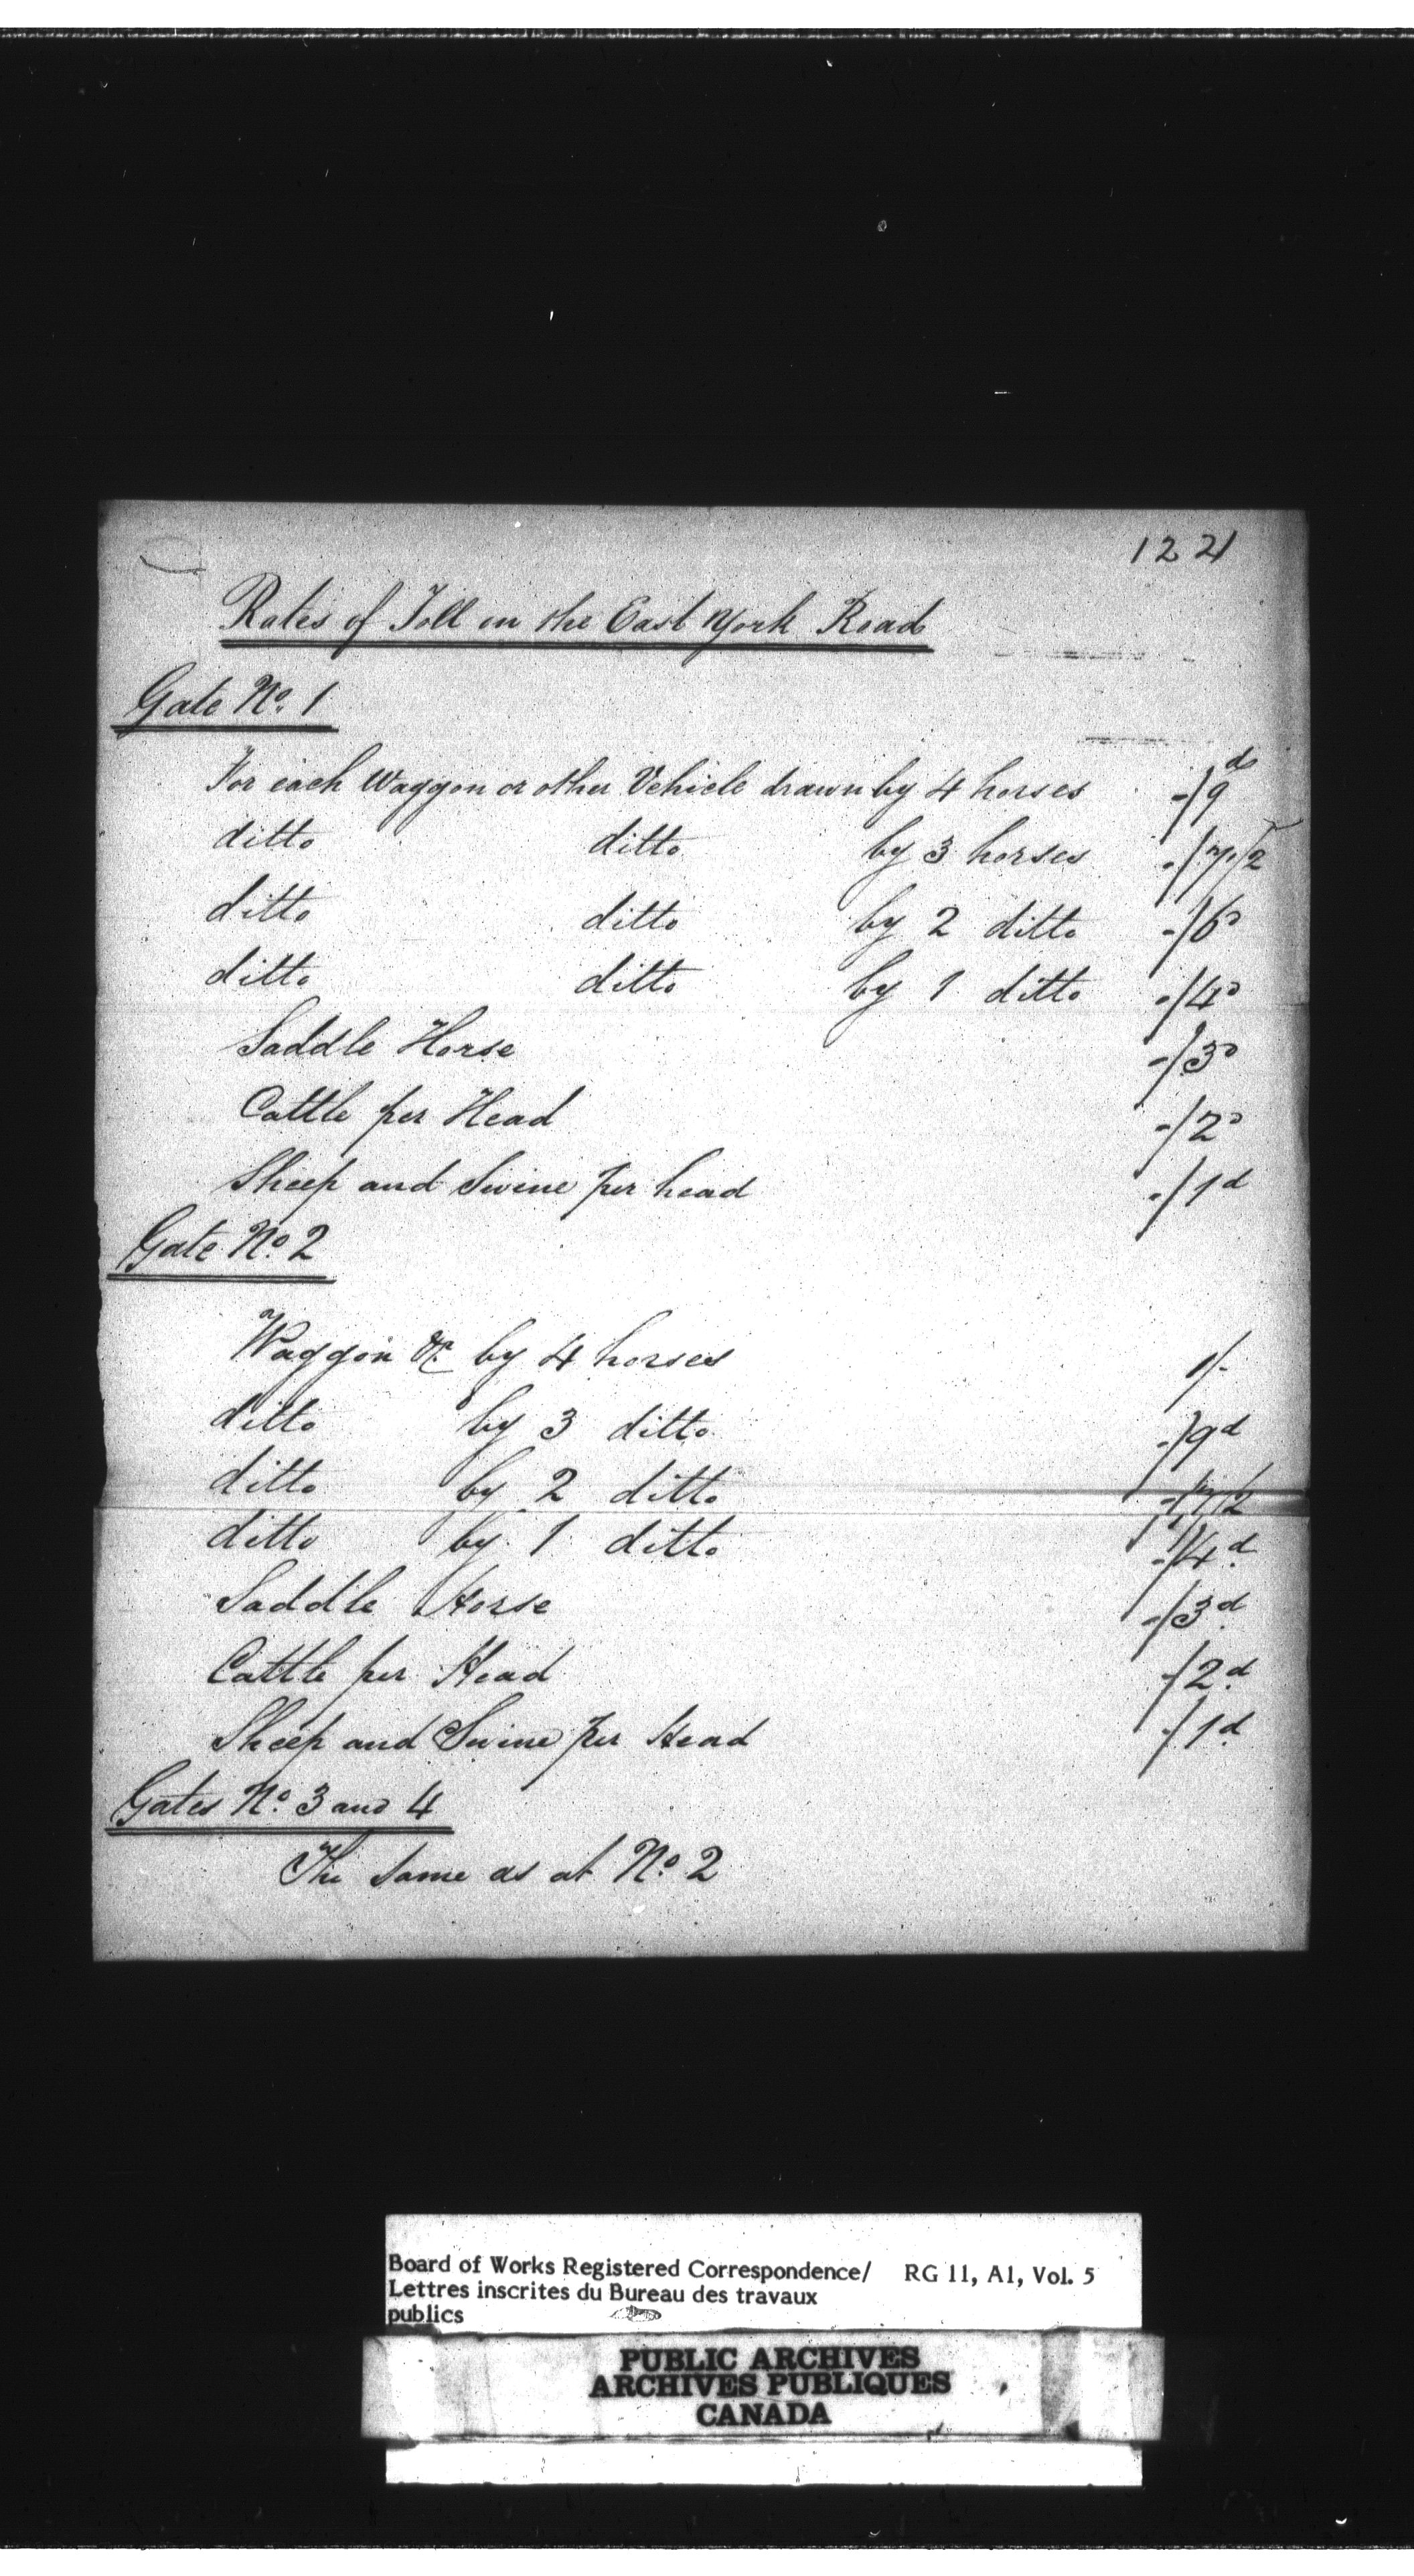 1221
Rates of Toll on the East York Road
Gate No. 1
For each Waggon or other Vehicle drawn by 4 horses -/9d
ditto ditto by 3 horses -/7 1/2
ditto ditto by 2 ditto -/6d
ditto ditto by 1 ditto -/4d
Saddle Horse -/3d
Cattle per Head -/2d
Sheep and Swine per head -/1d
Gate No. 2
Waggon &c by 4 horses 1/-
ditto by 3 ditto -/9d
ditto by 2 ditto -/7 1/2
ditto by 1 ditto -/4d
Saddle Horse -/3d
Cattle per Head -/2d
Sheep and Swine per Head -/1d
Gates No. 3 and 4
The same as at No. 2
Board of Works Registered Correspondence/ RG 11, A1, Vol. 5
Lettres inscrites du Bureau des travaux
publics
PUBLIC ARCHIVES
ARCHIVES PUBLIQUES
CANADA